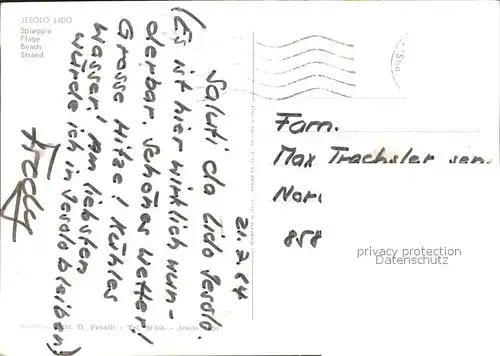 JESOLO LIDO
Spiaggia
Plage
Beach
Strand
21.7.64
Saluti da Lido Jesolo.
(Es ist hier wirklich wun-
derbar. Schönes Wetter!
Grosse Hitze! Kühles
Wasser! Am liebsten
würde ich in Jesolo bleiben)
Fredy
Fam.
Max Trachsler sen.
Nor
858
privacy protection
Datenschutz
G. Pavalli - Tel. - Jesolo Lido